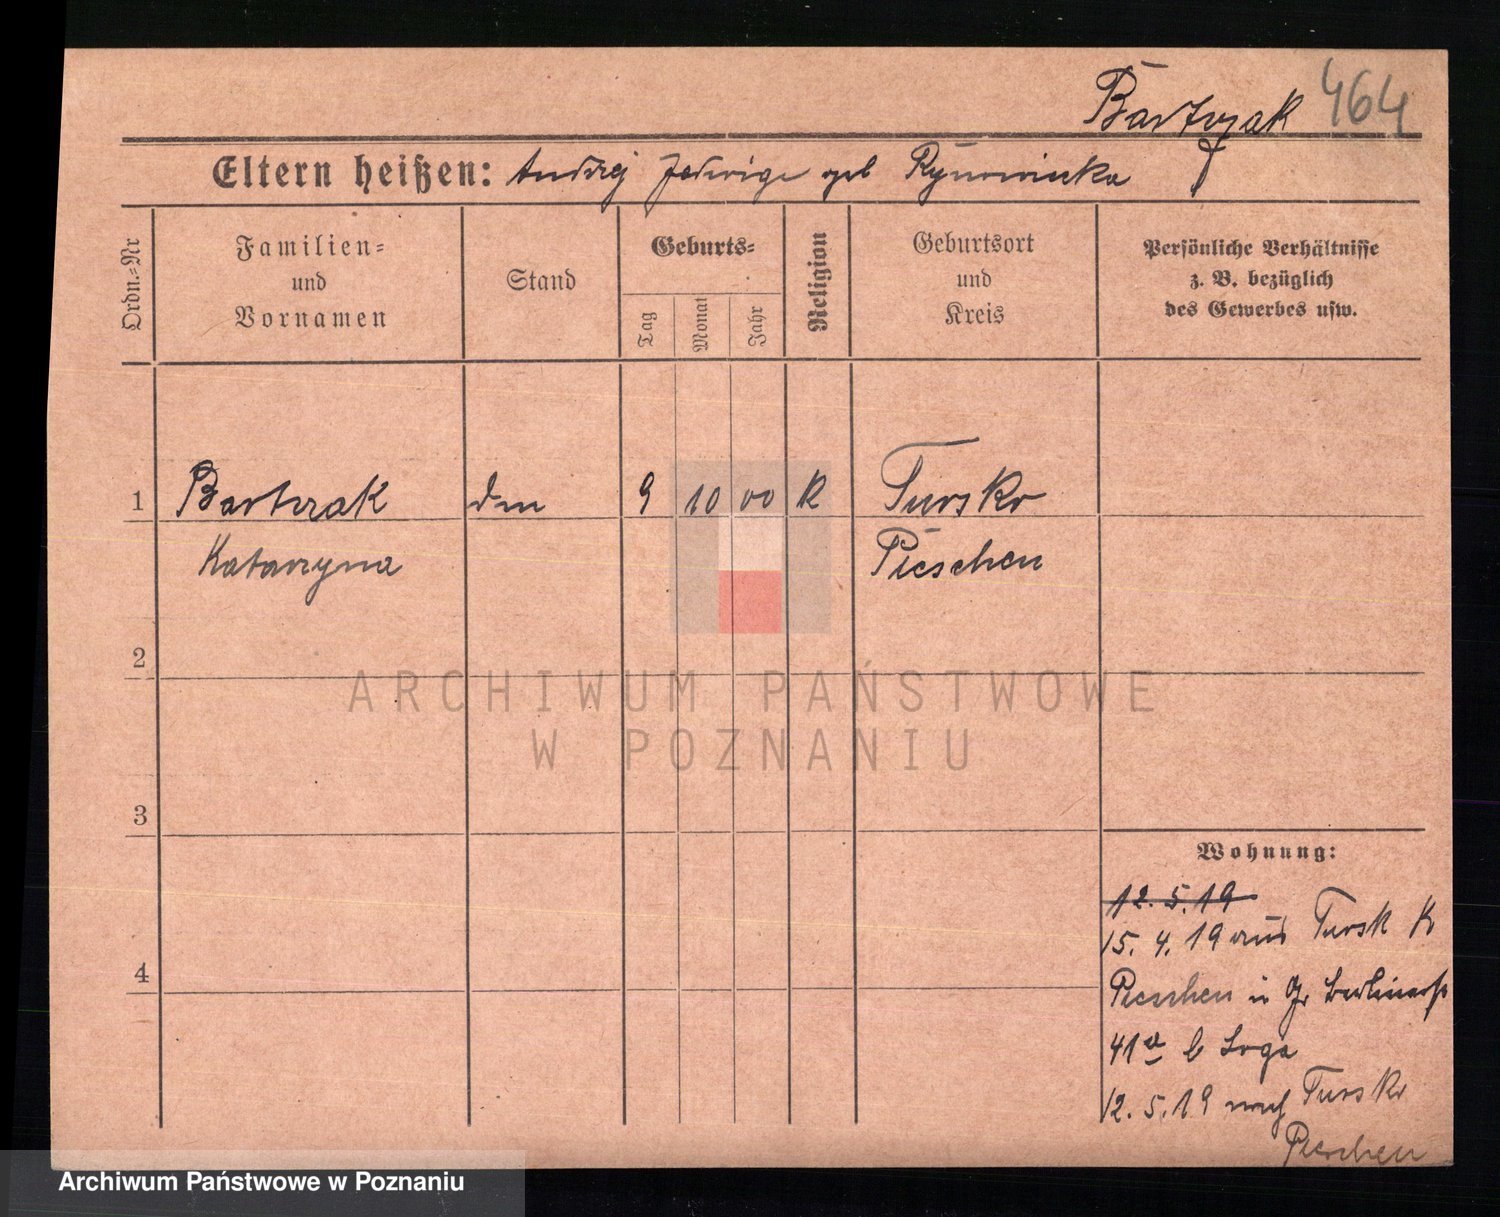 Bartrzak 464
Eltern heißen: Andrzej Jedwiga geb Rynowicka
Ordn.-Nr
Familien-
und
Vornamen
Stand
Geburts-
Tag
Monat
Jahr
Religion
Geburtsort
und
Kreis
Persönliche Verhältnisse
z. B. bezüglich
des Gewerbes usw.
1 Bartrzak 9 10 00 K Tursko
Katarzyna Pleschen
2
3
4
Wohnung:
12.5.19
15.4.19 aus Tursk K
Pleschen in Gr Berlinerst
41a b Loga
12.5.19 nach Tursko
Pleschen
ARCHIWUM PAŃSTWOWE
W POZNANIU
Archiwum Państwowe w Poznaniu